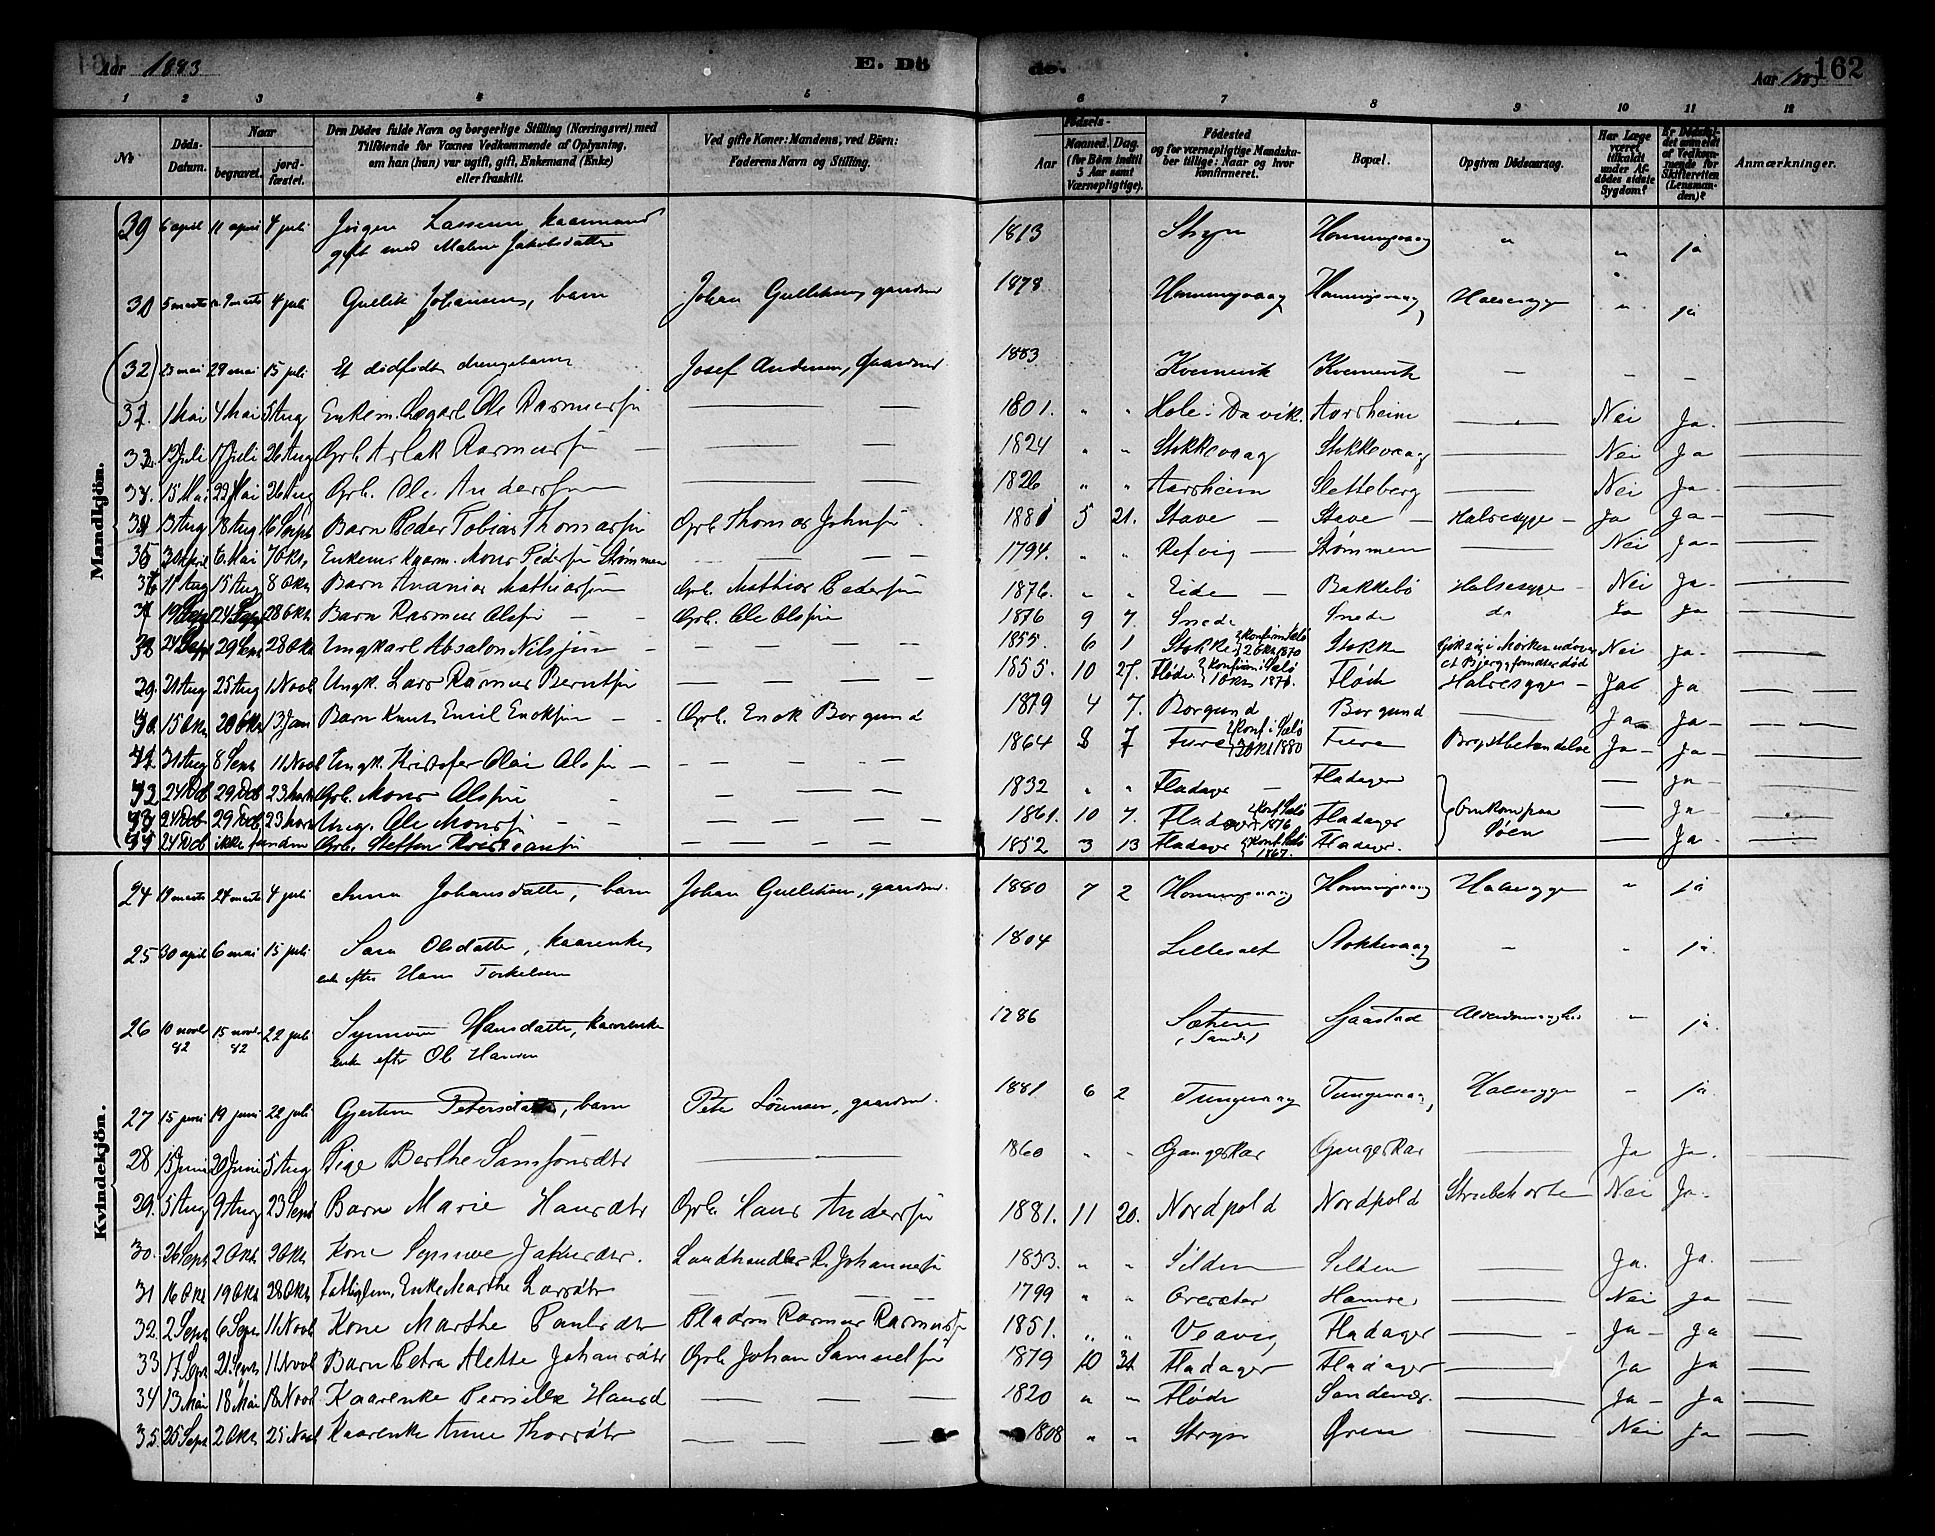 Aar 1883 E. Dö de. Aar 1883 162
1 2 3 4 5 6 7 8 9 10 11 12
No
Döds-Datum.
Naar
begravet.
jord-fæstet.
Den Dödes fulde Navn og borgerlige Stilling (Næringsvei) med
Tilföiende for Voxnes Vedkommende af Oplysning,
om han (hun) var ugift, gift, Enkemand (Enke)
eller fraskilt.
Ved gifte Koner: Mandens, ved Börn:
Faderens Navn og Stilling.
Födsels-
Aar
Maaned. Dag.
(for Börn indtil
5 Aar samt
Værnepligtige).
Födested
og for værnepligtige Mandska-
ber tillige: Naar og hvor
konfirmeret.
Bopæl.
Opgiven Dödsaarsag.
Har Læge
været
tilkaldt
under Af-
dödes sidste
Sygdom?
Er Dödsfal-
det anmeldt
af Vedkom-
mende for
Skifteretten
(Lensman-
den)?
Anmærkninger.
Mandkjön.
6 april 11 april 4 juli Jørgen Lassesen kaarmand 1813 Stryn Honningsvaag " " ja
gift med Malene Jakobsdatter
5 marts 9 marts 4 juli Gullik Johansen, barn Johan Gulliksen, gaardmd 1878 Honningsvaag Honningsvaag Halsesyge " ja
(32) 23 mai 29 mai 15 juli Et dødfødt drengebarn Josef Andersen, Gaardmd 1883 Kvernevik Kvernevik — — —
1 Mai 4 Mai 5 Aug Enkem. Legarl Ole Rasmussøn 1801. " " Hole i Davik. Aarsheim — Nei Ja.
12 Juli 17 Juli 26 Aug Grb. Aslak Rasmussøn 1824 " " Stokkevaag Stokkevaag — Nei Ja
15 Mai 22 Mai 26 Aug Grb. Ole Anderssøn 1826 " " Aarsheim Sletteberg — Nei Ja.
13 Aug 18 Aug 16 Sept Barn Peder Tobias Thomassøn Grb. Thomas Johnsøn 1881 5 21. Stave Stave Halsesyge Ja Ja
35 30 April 6. Mai 7 Okt, Enkem Kaarm. Mons Pedersøn Strømmen 1794. " " Refvig Strømmen — Nei Ja
11 Aug 15 Aug 8 Okt Barn Ananias Mathiassøn Grb. Mathias Pedersøn 1876. " " Eide Bakkebø Halsesyge Nei Ja
19 Sept 24 Sept 28 Okt Barn Rasmus Olssøn Grb. Ole Olssøn 1876 9 7. Snede Snede do Ja Ja
38 24 Sept 29 Sept 28 Okt Ungkarl Absalon Nilssøn 1855. 6 1 Stokke {konfirm Selø 2 Okt 1870 Stokke Gik sig i Mørket udover et Bjerg, fandtes død Nei Ja
39. 21 Aug 25 Aug 1 Novb Ungk. Lars Rasmus Berntsøn 1855. 10 27. Fløde {Konfirm i Selø Fløde Halsesyge Ja Ja
15 Okt 20 Okt 13 Jan Barn Knut Emil Enoksøn Grb. Enok Borgund 1879 4 7. Borgund Borgund — Ja Ja
31 Aug 8 Sept 11 Novb Ungk. Kristofer Olai Olssøn 1864 8 7 Fure {Konf. i Selø Okt 1880 Fure Brystbetændelse Ja Ja
42 24 Deb 29 Deb 23 marts Grb. Mons Olssøn 1832 " " Fladager Fladager Omkom paa Søen — Ja
43 24 Deb 29 Deb 23 marts Ung. Ole Monssøn 1861. 10 7. Fladager {Konf. Selø 1876 Fladager — Ja
44 24 Deb ikke funden Grb. Steffen Kristiansøn 1852 3 13 Fladager {Konf. Selø 1867. Fladager. — Ja
Kvindekjön.
24 19 marts 24 marts 4 juli Anna Johansdatter, barn Johan Gulliksen, gaardmd. 1880 7 2 Honningsvaag Honningsvaag Halsesyge " ja
25 30 april 6 mai 15 juli Sara Olsdatter, kaarenke 1804 Lillesalt Stokkevaag " " ja.
enke efter Hans Torkelsen
26 10 novb. 82 15 novb. 82 22 juli Synnøve Hansdatter, kaarenke 1786 Sætren (Sande) Gaastad Alderdomssvaghed " ja.
enke efter Ole Hansen
27 15 juni 19 juni 22 juli Gjertine Petersdatter, barn Peter Sørensen, gaardmd. 1881 6 2 Tungevaag Tungevaag, Halsesyge " ja.
28 15 Juni 20 Juni 5 Aug Pige Berthe Samsonsdtr 1860 " " Gangeskar Gangeskar — Ja Ja.
29. 5 Aug 9 Aug 23 Sept Barn Marie Hansdtr Grb. Hans Anderssøn 1881. 11 20. Nordpold Nordpold Strubehoste Nei Ja.
30. 26 Sept 2 Okt Okt Kone Synnøve Jakobsdtr. Landhandler R. Johannessøn 1833. " " Silden Silden Ja. Ja.
31 16 Okt 19 Okt 28 Okt Fattiglem, Enke Marthe Larsdtr 1799 " " Oresæter Hamre Nei Ja
32. 2 Sept 6 Sept 11 Novb Kone Marthe Paulsdtr Pladsm Rasmus Rasmussøn 1851. " " Veavig Fladager — Ja Ja
33 17 Sept 21 Sept 11 Novb Barn Petra Alette Johansdtr Grb. Johan Samuelsøn 1879 10 31 Fladager Fladager — Ja Ja
34 13 Mai 18 Mai 18 Novb Kaarenke Pernille Hansd 1820 " " Fløde Sandenær. — Ja Ja
35. 25 Sept 2 Okt 25 Novb Kaarenke Anne Thorsdtr 1808 " " Stryn Øren — Nei Ja